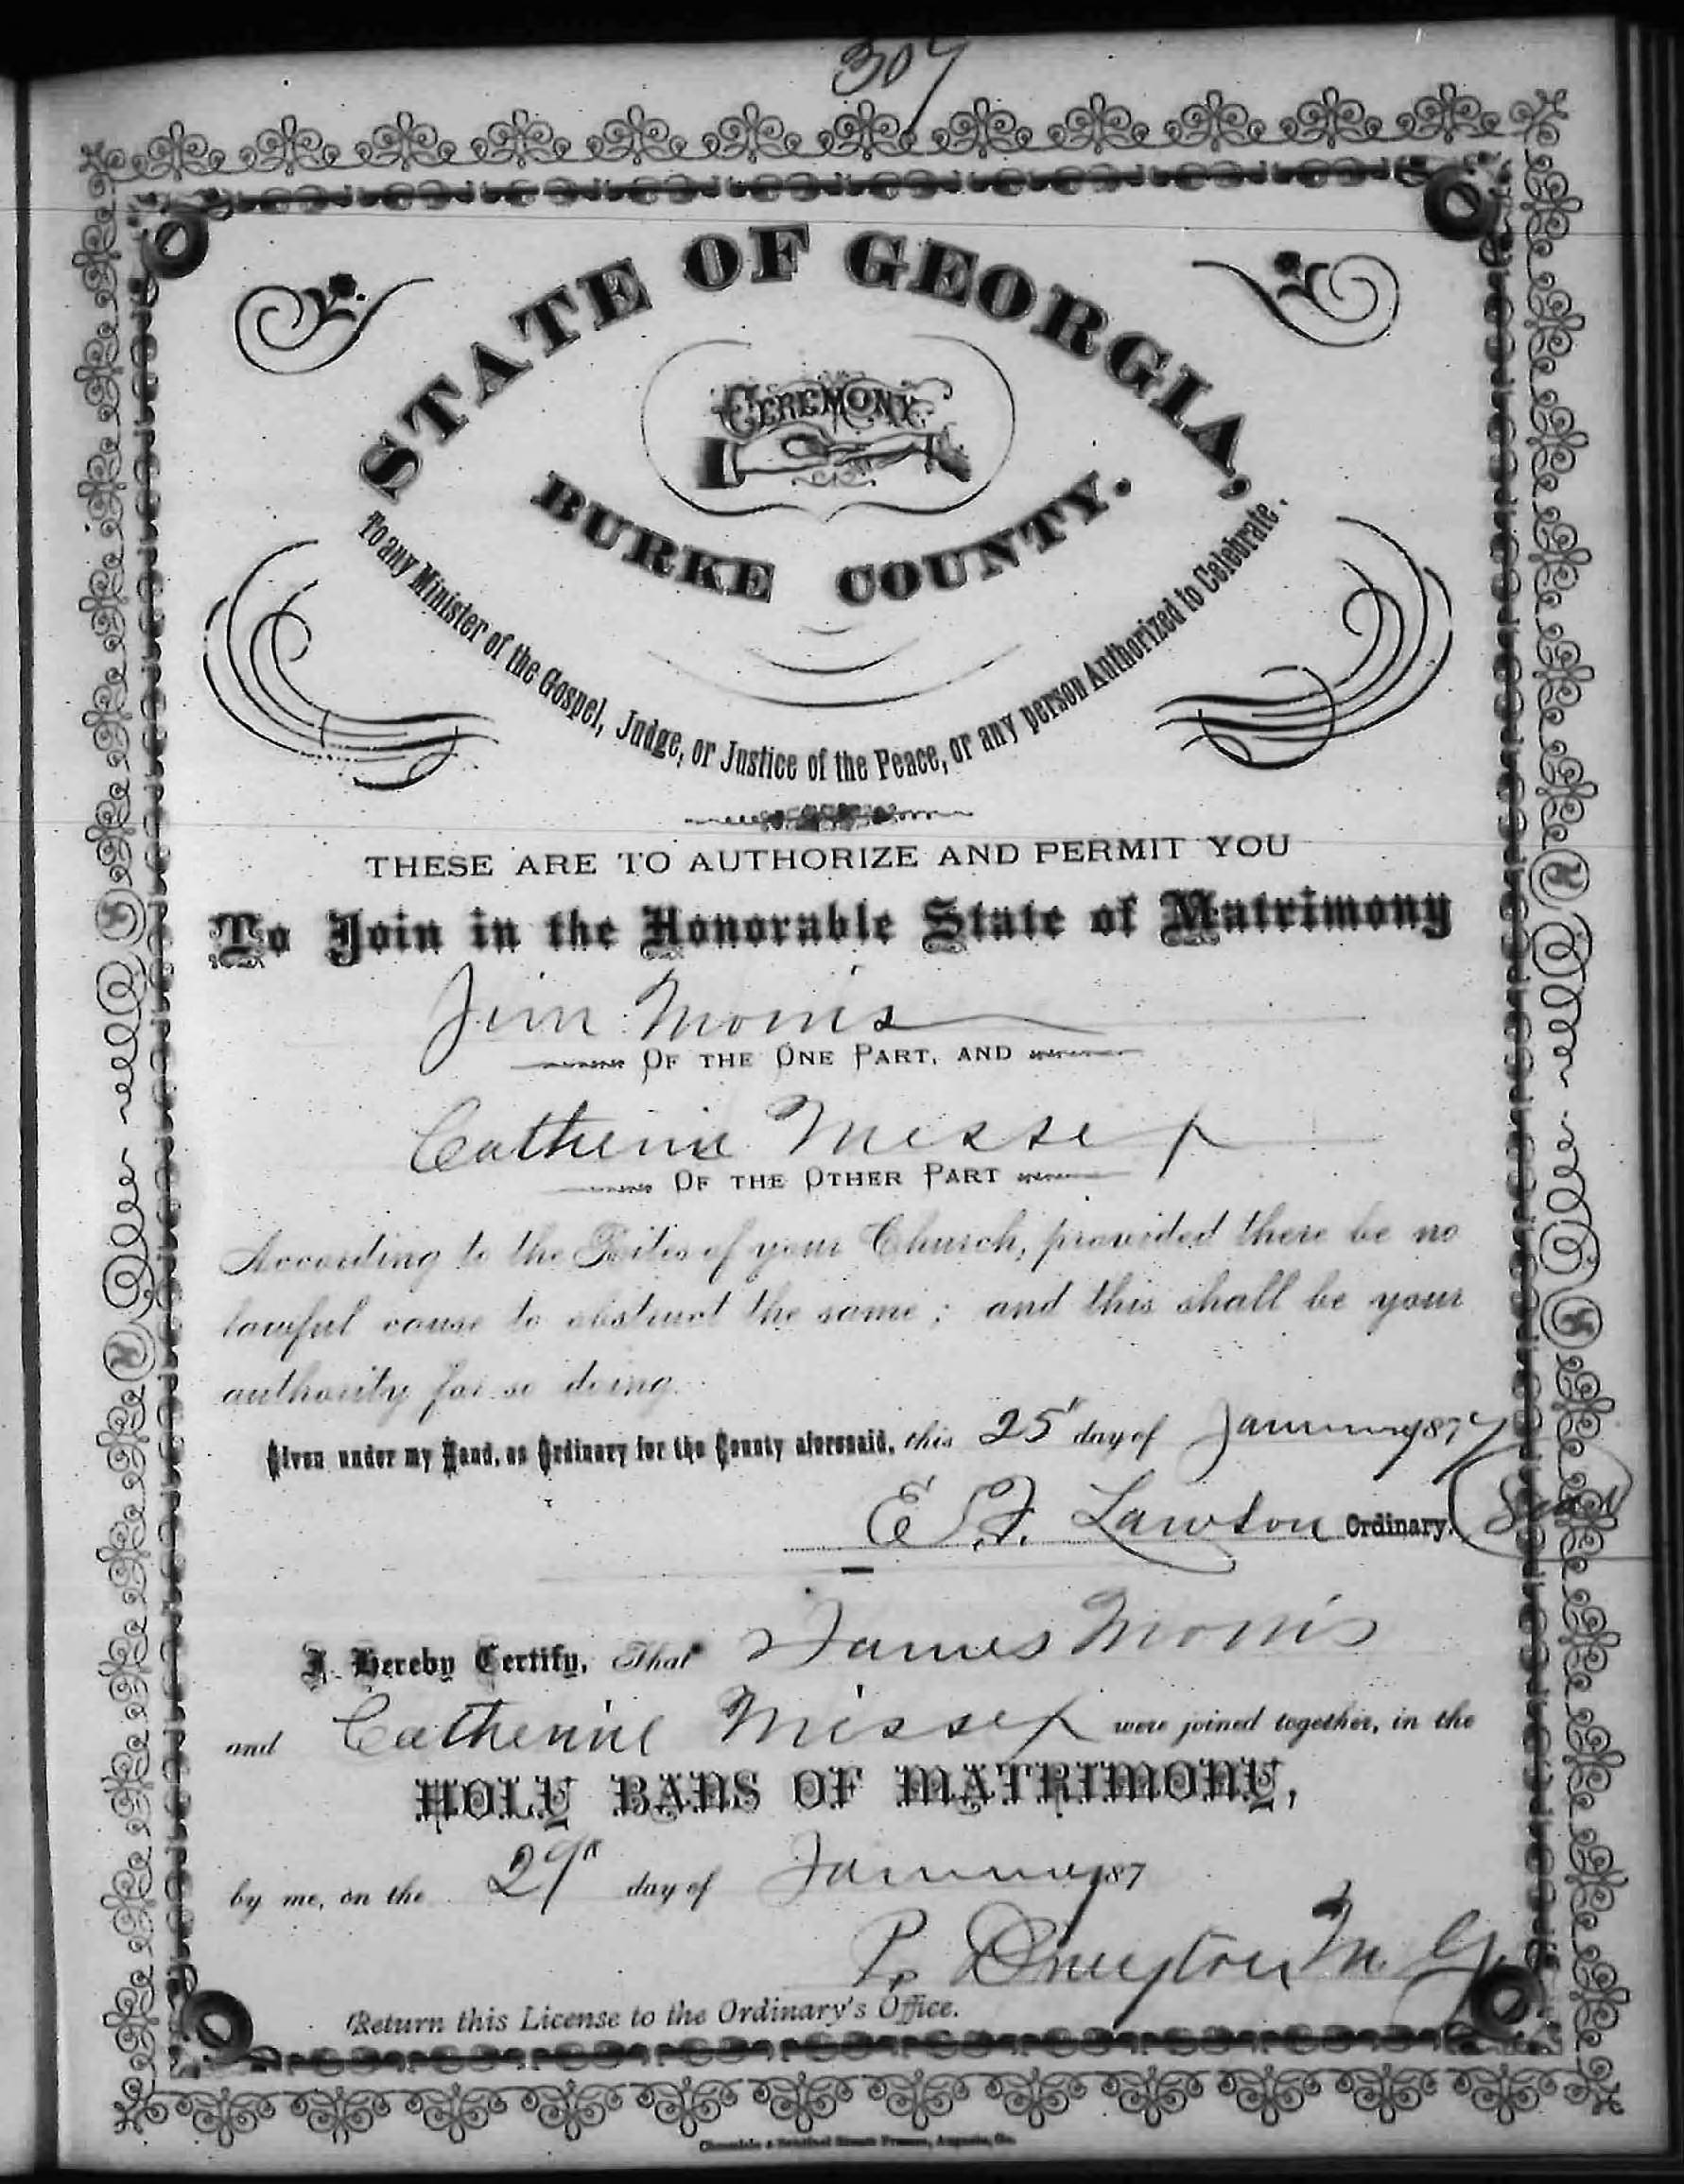 307
STATE OF GEORGIA,
CEREMONY
BURKE COUNTY.
To any Minister of the Gospel, Judge, or Justice of the Peace, or any person Authorized to Celebrate.
THESE ARE TO AUTHORIZE AND PERMIT YOU
To Join in the Honorable State of Matrimony
Jim Morris
OF THE ONE PART, AND
Catherine Messex
OF THE OTHER PART
According to the Rites of your Church, provided there be no
lawful cause to obstruct the same; and this shall be your
authority for so doing.
Given under my Hand, as Ordinary for the County aforesaid, this 25 day of January 1877
E. F. Lawson Ordinary. Seal
I Hereby Certify, That James Morris
and Catherine Missex were joined together, in the
HOLY BANS OF MATRIMONY,
by me, on the 29th day of January 187
P. Drayton M. G.
Return this License to the Ordinary's Office.
Chronicle & Sentinel Steam Presses, Augusta, Ga.